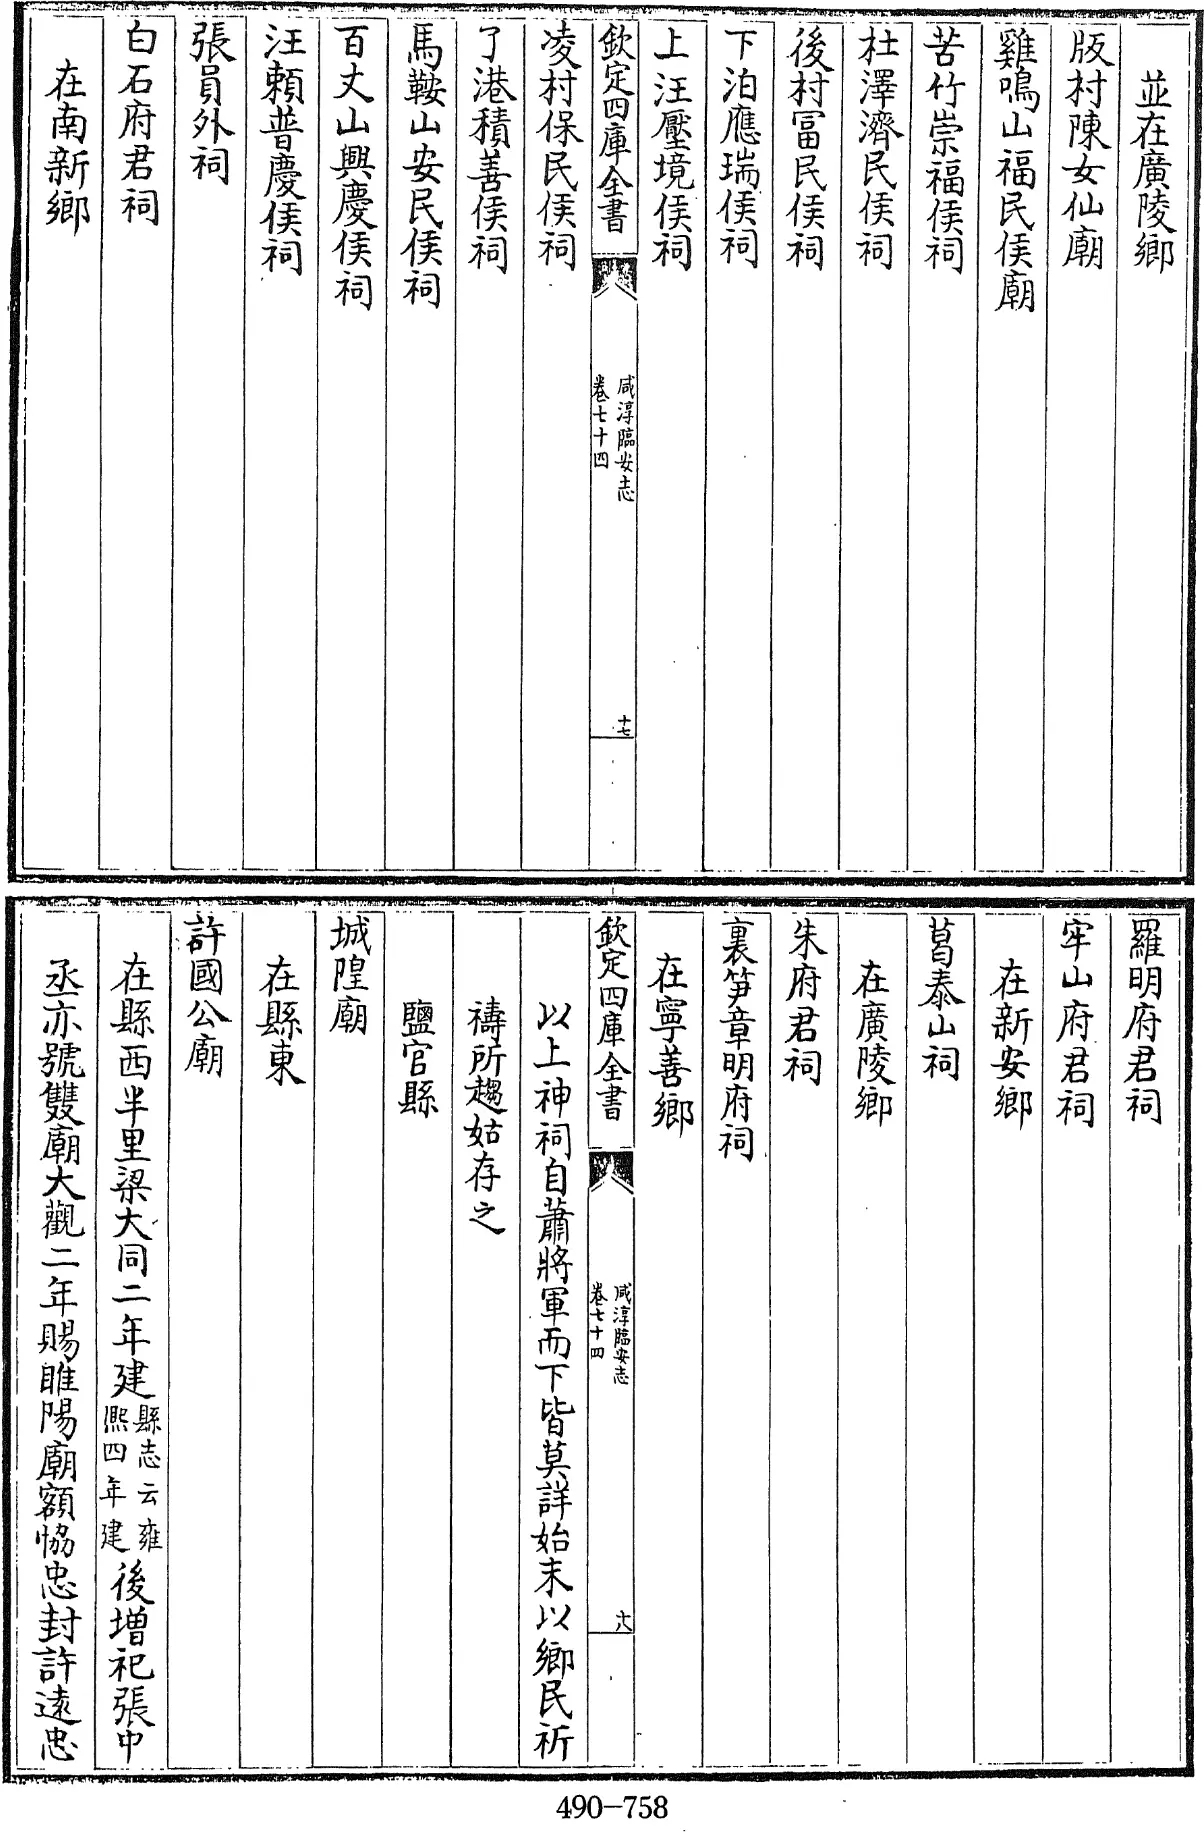 並在廣陵鄉
版村陳女仙廟
雞鳴山福民侯廟
苦竹崇福侯祠
杜澤濟民侯祠
後村冨民侯祠
下泊應瑞侯祠
上汪壓境侯祠
欽定四庫全書
咸淳臨安志
卷七十四
十七
凌村保民侯祠
了港積善侯祠
馬鞍山安民侯祠
百丈山興慶侯祠
汪頼普慶侯祠
張員外祠
白石府君祠
在南新鄉
羅明府君祠
牢山府君祠
在新安鄉
葛泰山祠
在廣陵鄉
朱府君祠
裏笋章明府祠
在寧善鄉
欽定四庫全書
咸淳臨安志
卷七十四
十八
以上神祠自蕭將軍而下皆莫詳始末以鄉民祈
禱所趨姑存之
鹽官縣
城隍廟
在縣東
許國公廟
在縣西半里梁大同二年建縣志云雍熈四年建後增祀張中
丞亦號雙廟大觀二年賜睢陽廟額恊忠封許遠忠
490-758